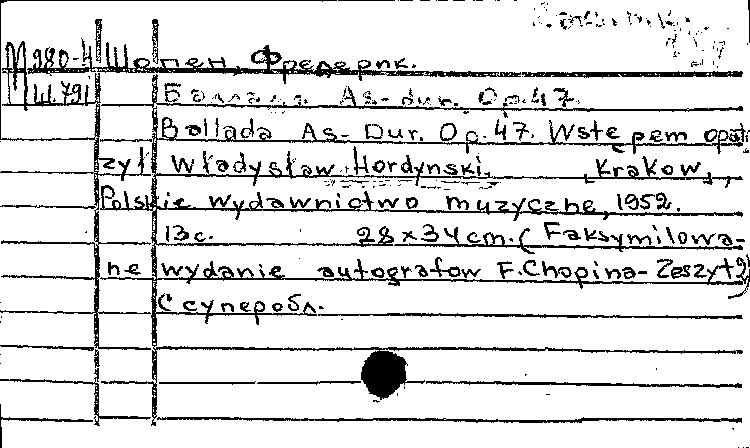 М 980-4 Шопен, Фредерик.
Ш.791 Баллада As-dur. Op.47.
Ballada As-Dur. Op.47. Wstępem opat-
rzył Władysław Hordynski. [Krakow],
Polskie wydawnictwo muzyczne, 1952.
13с. 28x34cm. (Faksymilowa-
ne wydanie autografow F.Chopina-Zeszyt 2)
С суперобл.